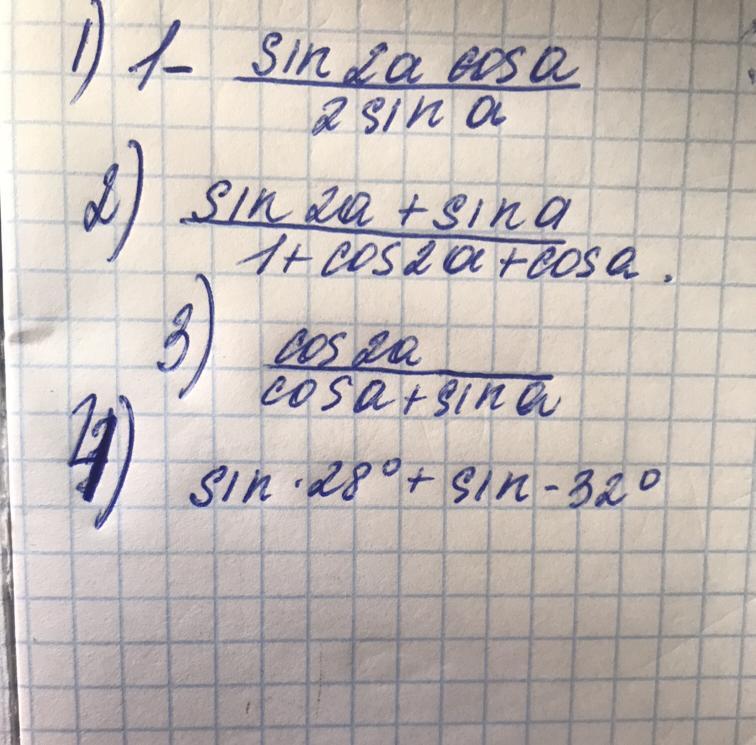 1) 1 - sin 2a cos a
2 sin a
2) sin 2a + sin a
1 + cos 2a + cos a.
3) cos 2a
cos a + sin a
4) sin · 28° + sin - 32°